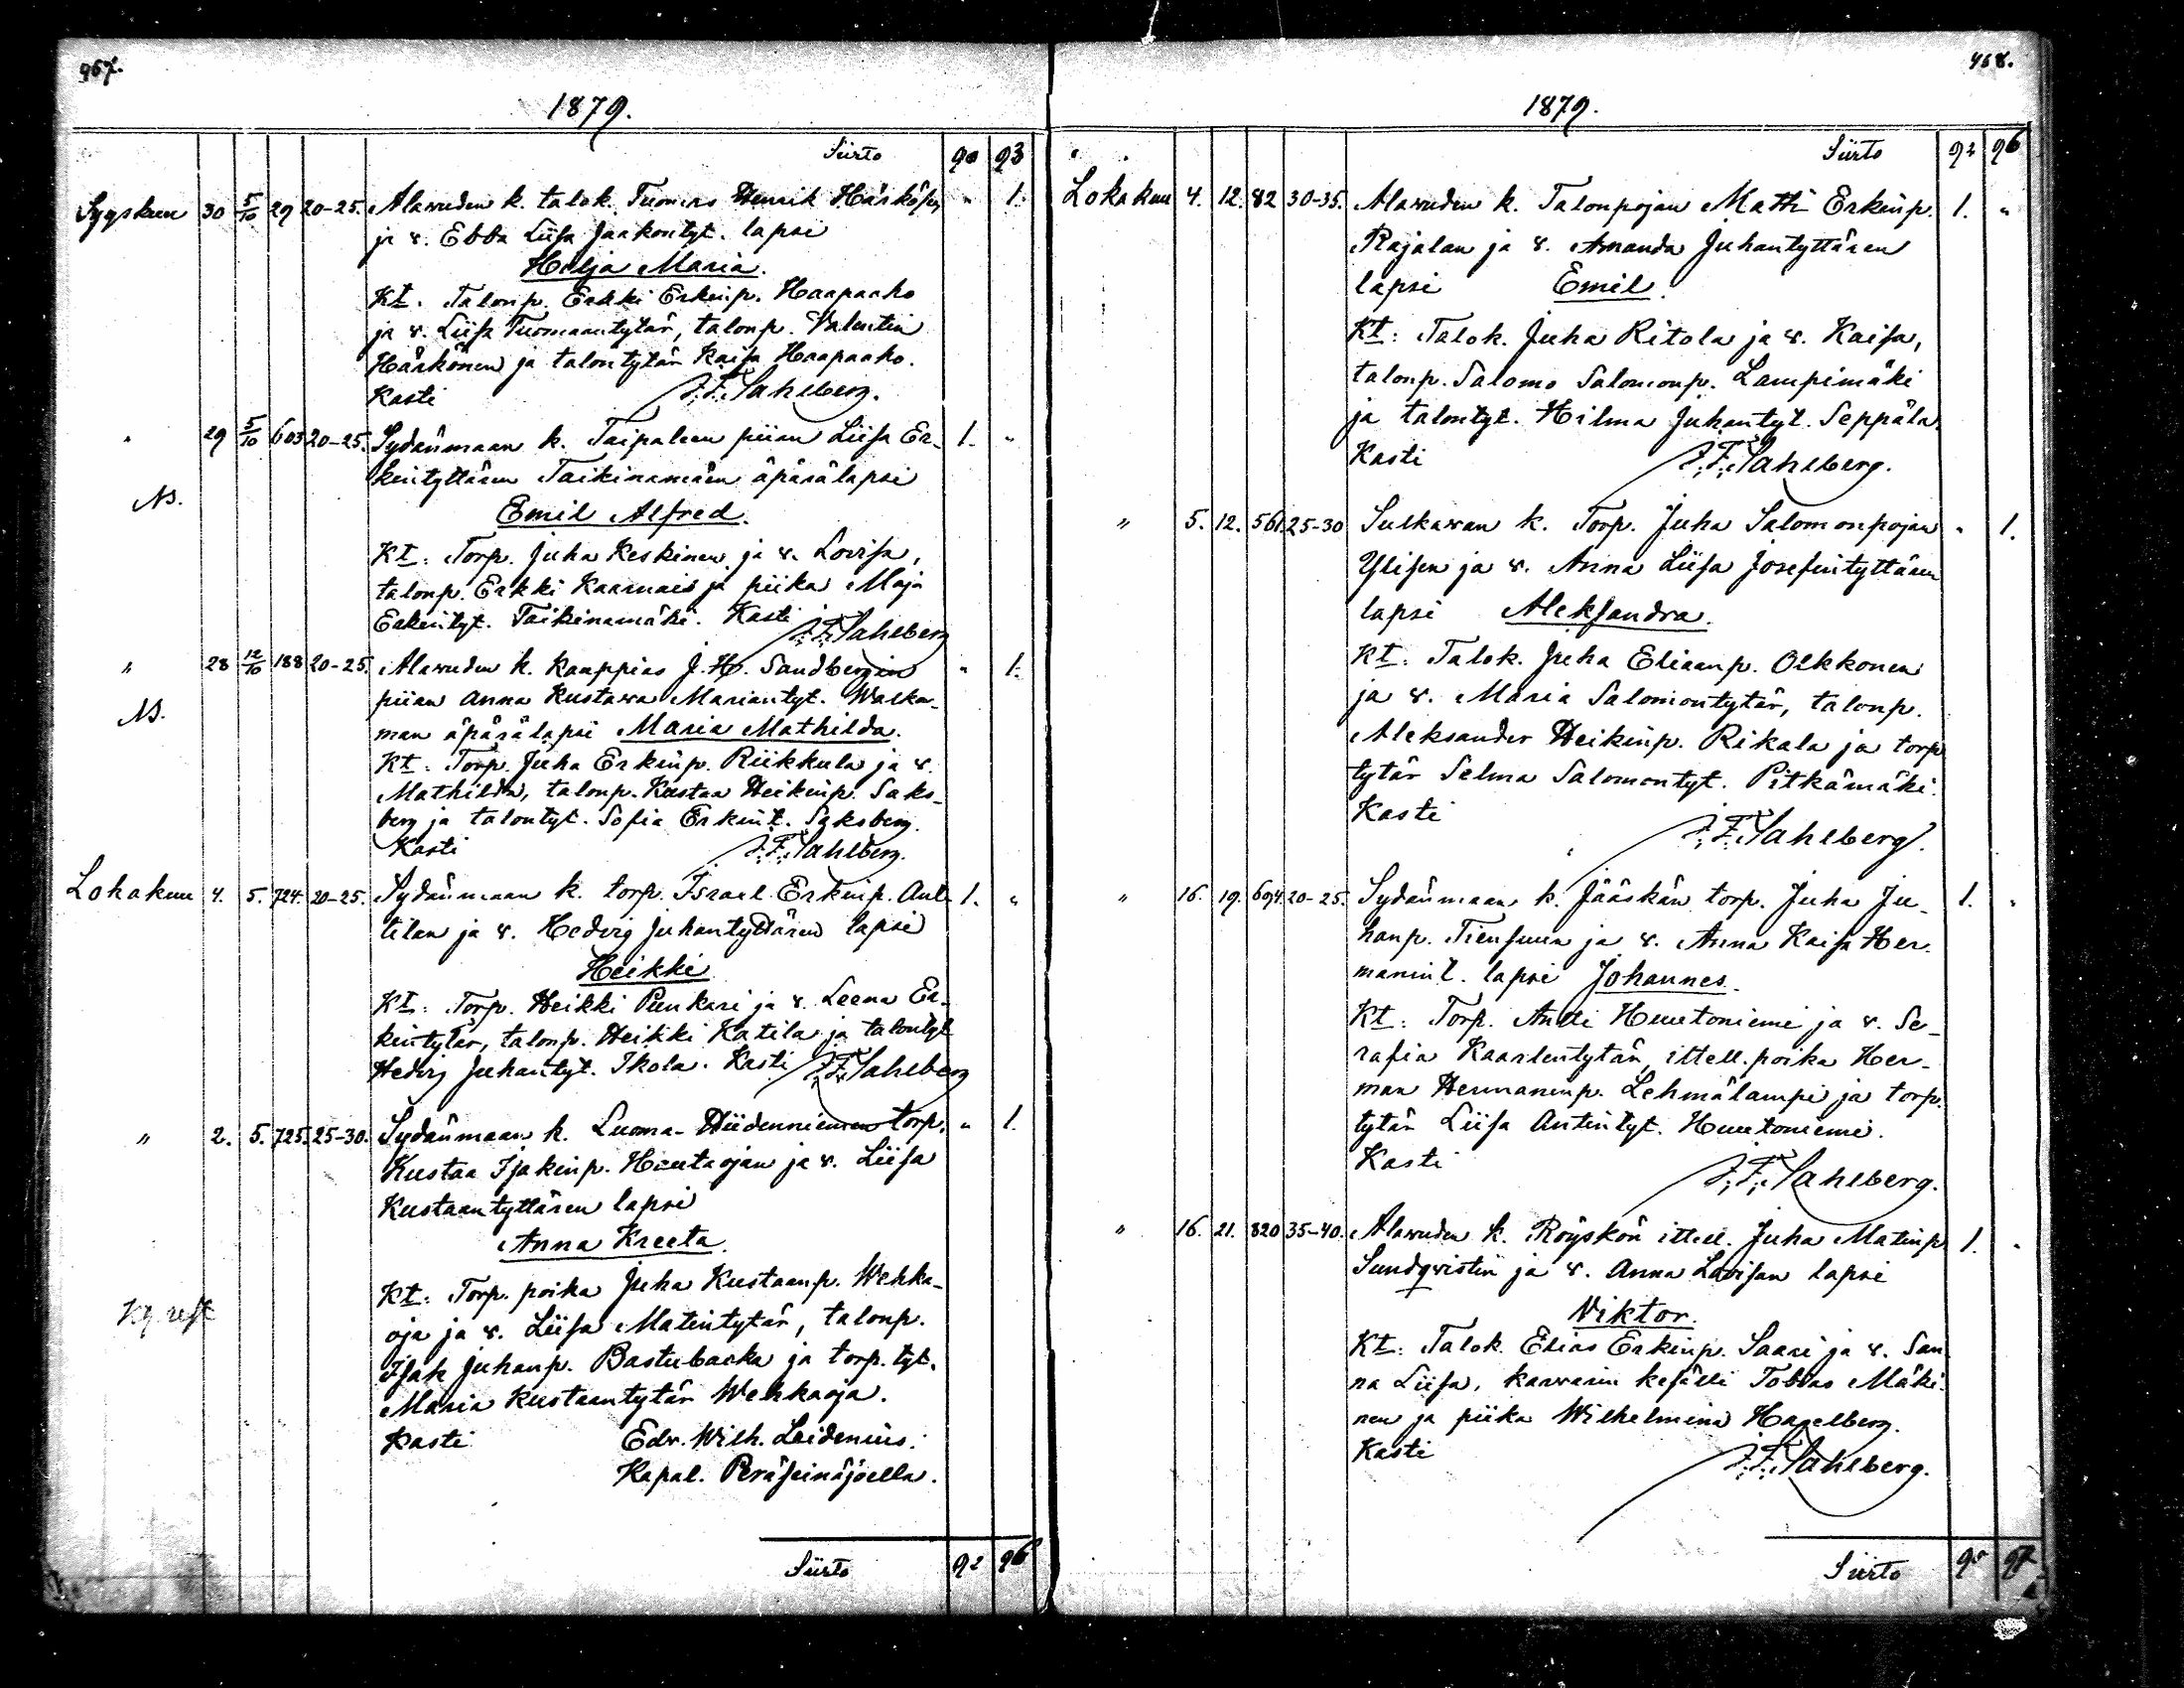 467.
1879.
Siirto 90 93
Syyskuu 30 5/10 29 20-25. Alavuden k. talok. Tuomas Henrik Härköpn " 1.
ja v. Ebba Liisa Jaakontyt. lapsi
Hilja Maria.
Kt. Talonp. Erkki Erkinp. Haapaaho
ja v. Liisa Tuomaantytär, talonp. Valentin
Härkönen ja talontytär Kaisa Haapaaho.
Kasti J.F. Sahlberg.
" 29 5/10 603 20-25. Sydänmaan k. Taipaleen piian Liisa Er- 1. "
kintyttären Taikinamäen äpärälapsi
NB.
Emil Alfred.
Kt: Torp. Juha Keskinen ja v. Lovisa,
talonp. Erkki Kaarnais ja piika Maja
Erkintyt. Taikinamäki. Kasti J.F. Sahlberg
" 28 12/10 188 20-25. Alavuden k. Kauppias J. H. Sandbergin " 1.
piian Anna Kustava Mariantyt. Walka-
NB.
man äpärälapsi Maria Mathilda.
Kt. Torp. Juha Erkinp. Riikkula ja v.
Mathilda, talonp. Kustaa Heikinp. Saks-
berg ja talontyt. Sofia Erkint. Saksberg.
Kasti J.F. Sahlberg.
Lokakuu 4. 5. 724. 20-25. Sydänmaan k. torp. Israel Erkinp. Ant- 1. "
tilan ja v. Hedvig Juhantyttären lapsi
Heikki
Kt: Torp. Heikki Punkari ja v. Leena Er-
kintytär, talonp. Heikki Katila ja talontyt
Hedvig Juhantyt. Ikola. Kasti J.F. Sahlberg
" 2. 5. 725. 25-30. Sydänmaan k. Luoma-Hiidenniemen torp. " 1.
Kustaa Isakinp. Hautaojan ja v. Liisa
Kustaantyttären lapsi
Anna Kreeta.
Kt: Torp. poika Juha Kustaanp. Wehka-
oja ja v. Liisa Matintytär, talonp.
Isak Juhanp. Bastubacka ja torp. tyt.
Maria Kustaantytär Wehkaoja.
Kasti Edv. Wilh. Leidenius.
Kapal. Peräseinäjoella.
Siirto 92 96
468.
1879.
Siirto 92 96
Lokakuu 4. 12. 82 30-35. Alavuden k. Talonpojan Matti Erkinp. 1. "
Rajalan ja v. Amanda Juhantyttären
lapsi Emil.
Kt: Talok. Juha Ritola ja v. Kaisa,
talonp. Salomo Salomonp. Lampimäki
ja talontyt. Hilma Juhantyt. Seppälä.
Kasti J.F. Sahlberg.
" 5. 12. 561. 25-30 Sulkavan k. Torp. Juha Salomonpojan " 1.
Ylisen ja v. Anna Liisa Josefintyttären
lapsi Aleksandra.
Kt: Talok. Juha Eliaanp. Olkkonen
ja v. Maria Salomontytär, talonp.
Aleksander Heikinp. Rikala ja torp
tytär Selma Salomontyt. Pitkämäki.
Kasti J.F. Sahlberg.
" 16. 19. 694 20-25. Sydänmaan k. Jääskän torp. Juha Ju- 1. "
hanp. Tiensuun ja v. Anna Kaisa Her-
manint. lapsi Johannes.
Kt: Torp. Antti Huutoniemi ja v. Se-
rafia Kaarlentytär, ittell. poika Her-
man Hermaninp. Lehmälampi ja torp.
tytär Liisa Antintyt. Huutoniemi.
Kasti J.F. Sahlberg.
" 16. 21. 820 35-40. Alavuden k. Röyskön ittell. Juha Matinp 1. "
Sundqvistin ja v. Anna Lovisan lapsi
Viktor.
Kt: Talok. Elias Erkinp. Saari ja v. San
na Liisa, karvarin kesälli Tobias Mäki-
nen ja piika Wilhelmina Hagelberg.
Kasti J.F. Sahlberg.
Siirto 95 97